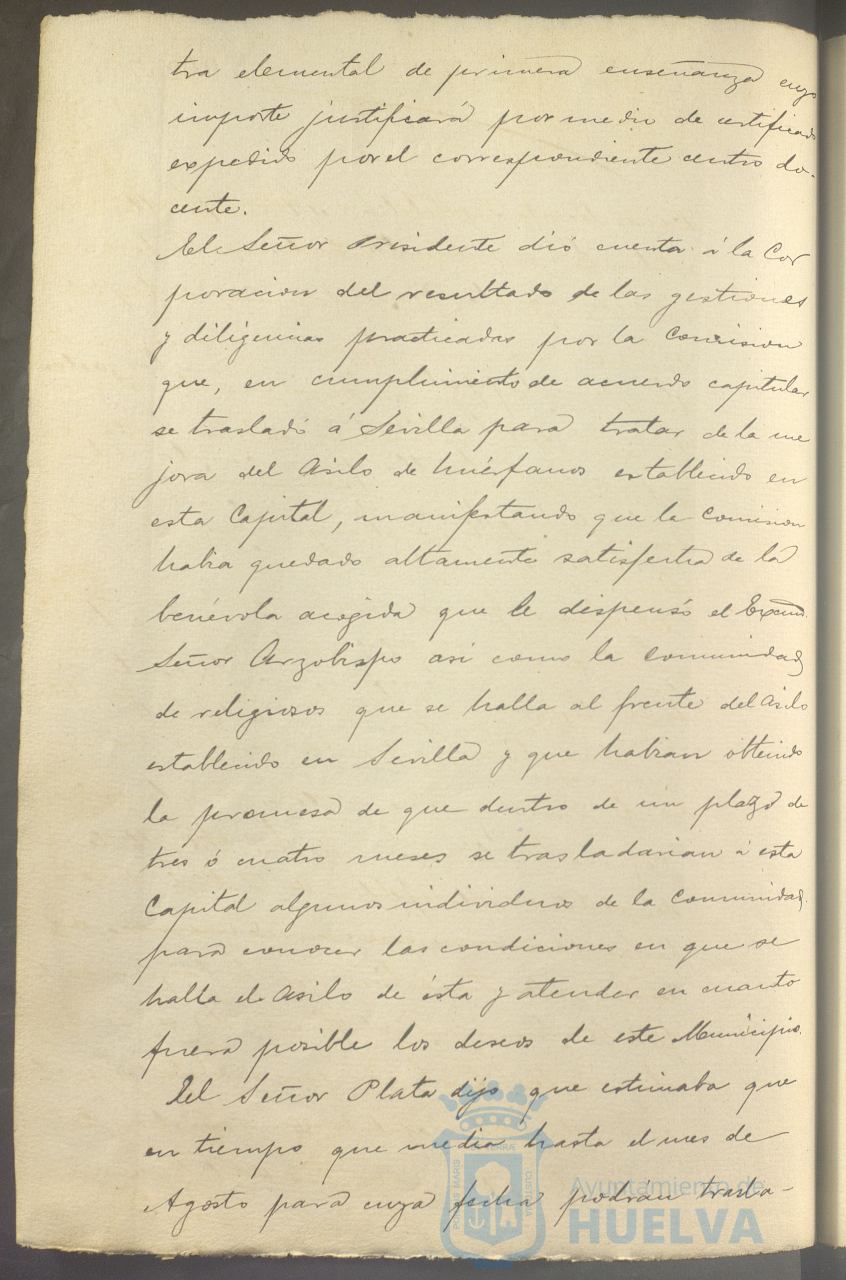 tra elemental de primera enseñanza cuyo
importe justificará por medio de certificado
expedido por el correspondiente centro do-
cente.
El Señor Presidente dió cuenta á la Cor
poracion del resultado de las gestiones
y diligencias practicadas por la Comision
que, en cumplimiento de acuerdo capitular
se trasladó á Sevilla para tratar de la me
jora del Asilo de huérfanos establecido en
esta Capital, manifestando que la Comision
habia quedado altamente satisfecha de la
benévola acogida que le dispensó el Excmo.
Señor Arzobispo asi como la comunidad
de religiosos que se halla al frente del Asilo
establecido en Sevilla y que habian obtenido
la promesa de que dentro de un plazo de
tres ó cuatro meses se trasladarian á esta
Capital algunos individuos de la Comunidad
para conocer las condiciones en que se
halla el Asilo de ésta y atender en cuanto
fuera posible los deseos de este Municipio.
El Señor Plata dijo que estimaba que
en tiempo que media hasta el mes de
Agosto para cuya fecha podrán trasla-
Ayuntamiento de
HUELVA